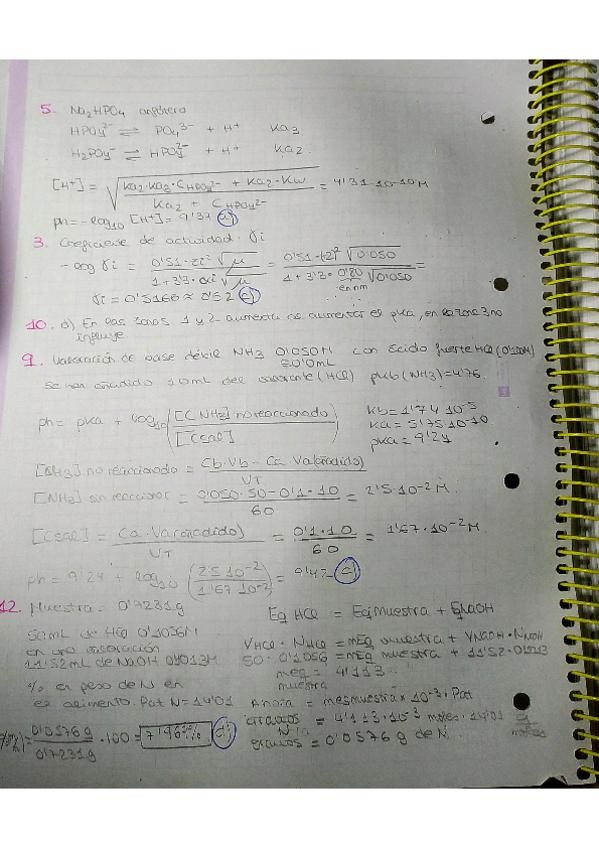 5. Na2HPO4 anfótero
HPO4 2- ⇌ PO4 3- + H+ Ka3
H2PO4- ⇌ HPO4 2- + H+ Ka2.
[H+] = √(Ka2·Ka3·CHPO4 2- + Ka2·Kw / Ka2 + CHPO4 2-) = 4'31·10-10 M
pH = -log10 [H+] = 9'37 a)
3. Coeficiente de actividad γi
-log γi = 0'51·zi² √μ / 1+3'3·αi √μ = 0'51·(-2)² √0'050 / 1+3'3·0'20 √0'050 =
en nm
γi = 0'5166 ≈ 0'52 c)
10. d) En las zonas 1 y 2 aumenta al aumentar el pKa, en la zona 3 no
influye
9. Valoración de base débil NH3 0'050M con ácido fuerte HCl (0'100M)
50'0mL
Se han añadido 10mL del valorante (HCl) pKb (NH3) = 4'76
pH = pKa + log10 ([CNH3] no reaccionado / [Csal])
Kb = 1'74 10-5
Ka = 5'75·10-10
pKa = 9'24
[NH3] no reaccionado = Cb·Vb - Ca Va(añadido) / VT
[NH3] sin reaccionar = 0'050·50 - 0'1·10 / 60 = 2'5·10-2 M.
[Csal] = Ca·Va(añadido) / VT = 0'1·10 / 60 = 1'67·10-2 M
pH = 9'24 + log10 (2'5 10-2 / 1'67 10-2) = 9'42
12. Muestra = 0'7231g
Eq HCl = Eq muestra + Eq NaOH
50mL de HCl 0'1056M
en una valoración
11'52mL de NaOH 0'1013M
VHCl · NHCl = mEq muestra + VNaOH · NNaOH
50·0'1056 = mEq muestra + 11'52·0'1013
meq muestra = 4'113
% en peso de N en
el alimento. Pat N = 14'01
gramos N = 4'113·10-3 moles · 14'01 g/moles
gramos = 0'0576 g de N.
0'0576 g / 0'7231g · 100 = 7'96% d)